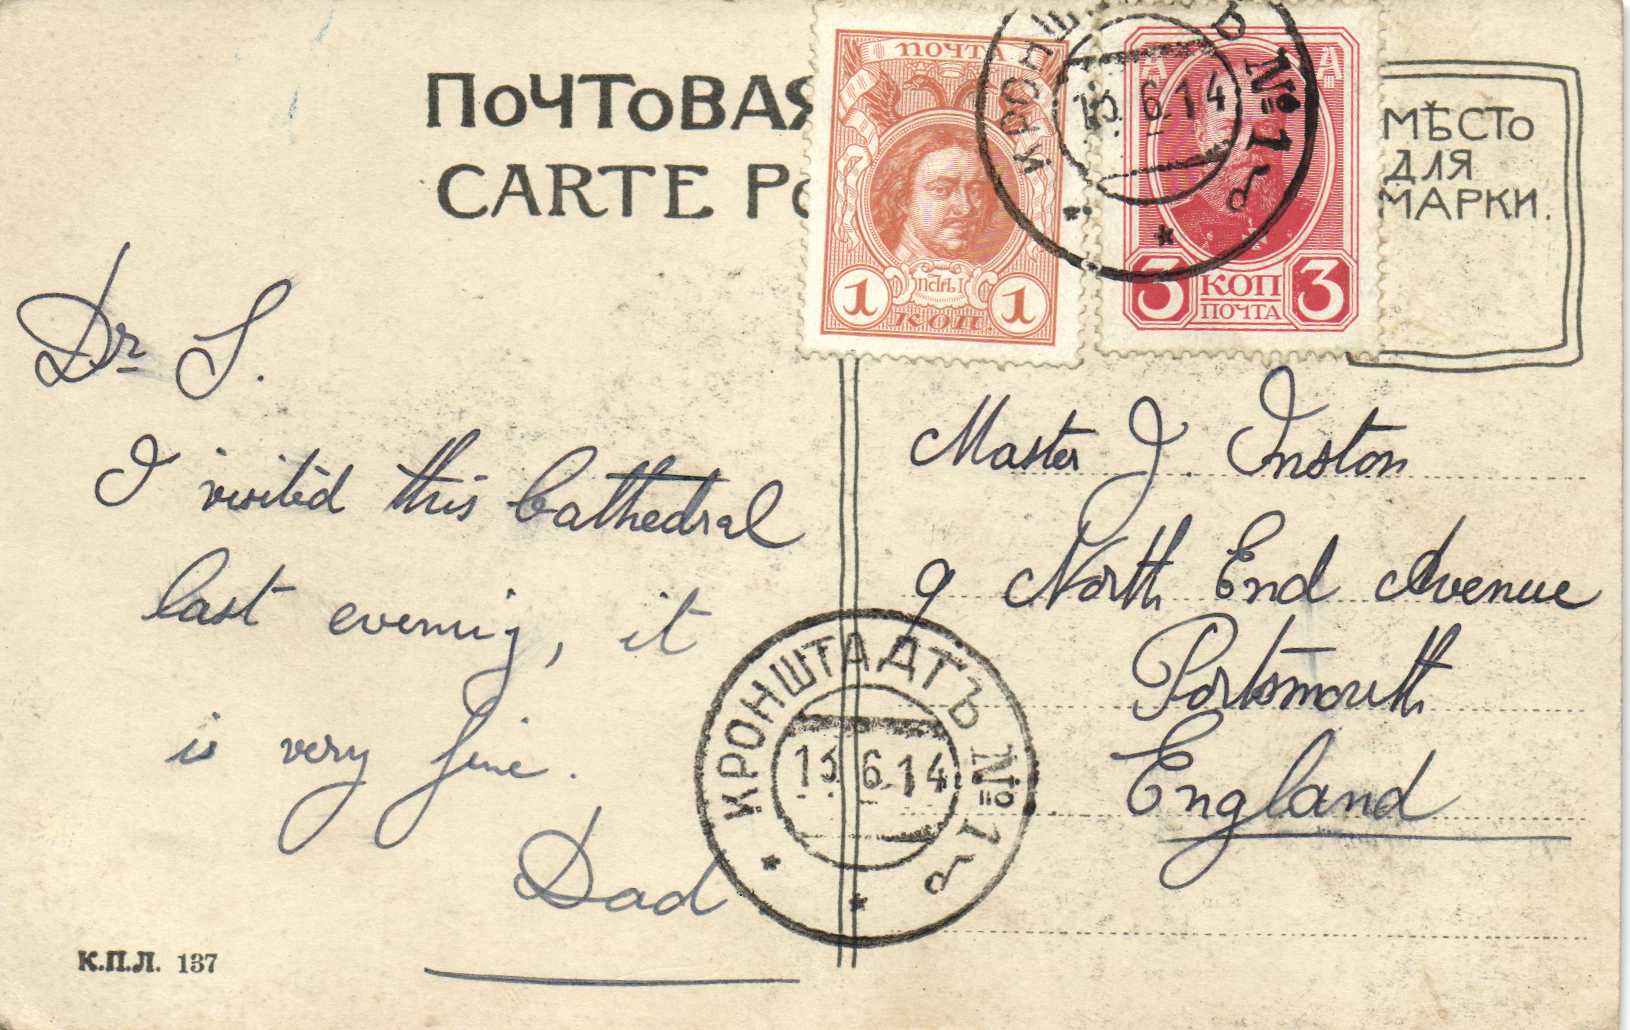 ПОЧТОВАЯ
CARTE Po
ПОЧТА
1 1
КОП.
3 КОП 3
ПОЧТА
КРОНШ Ъ № 1
13.6.14
МѢСТО
ДЛЯ
МАРКИ.
Dr S.
I visited this Cathedral
last evening, it
is very fine.
Dad
Master J. Inston
9 North End Avenue
Portsmouth
England
КРОНШТАДТЪ № 1
13.6.14
К.П.Л. 137